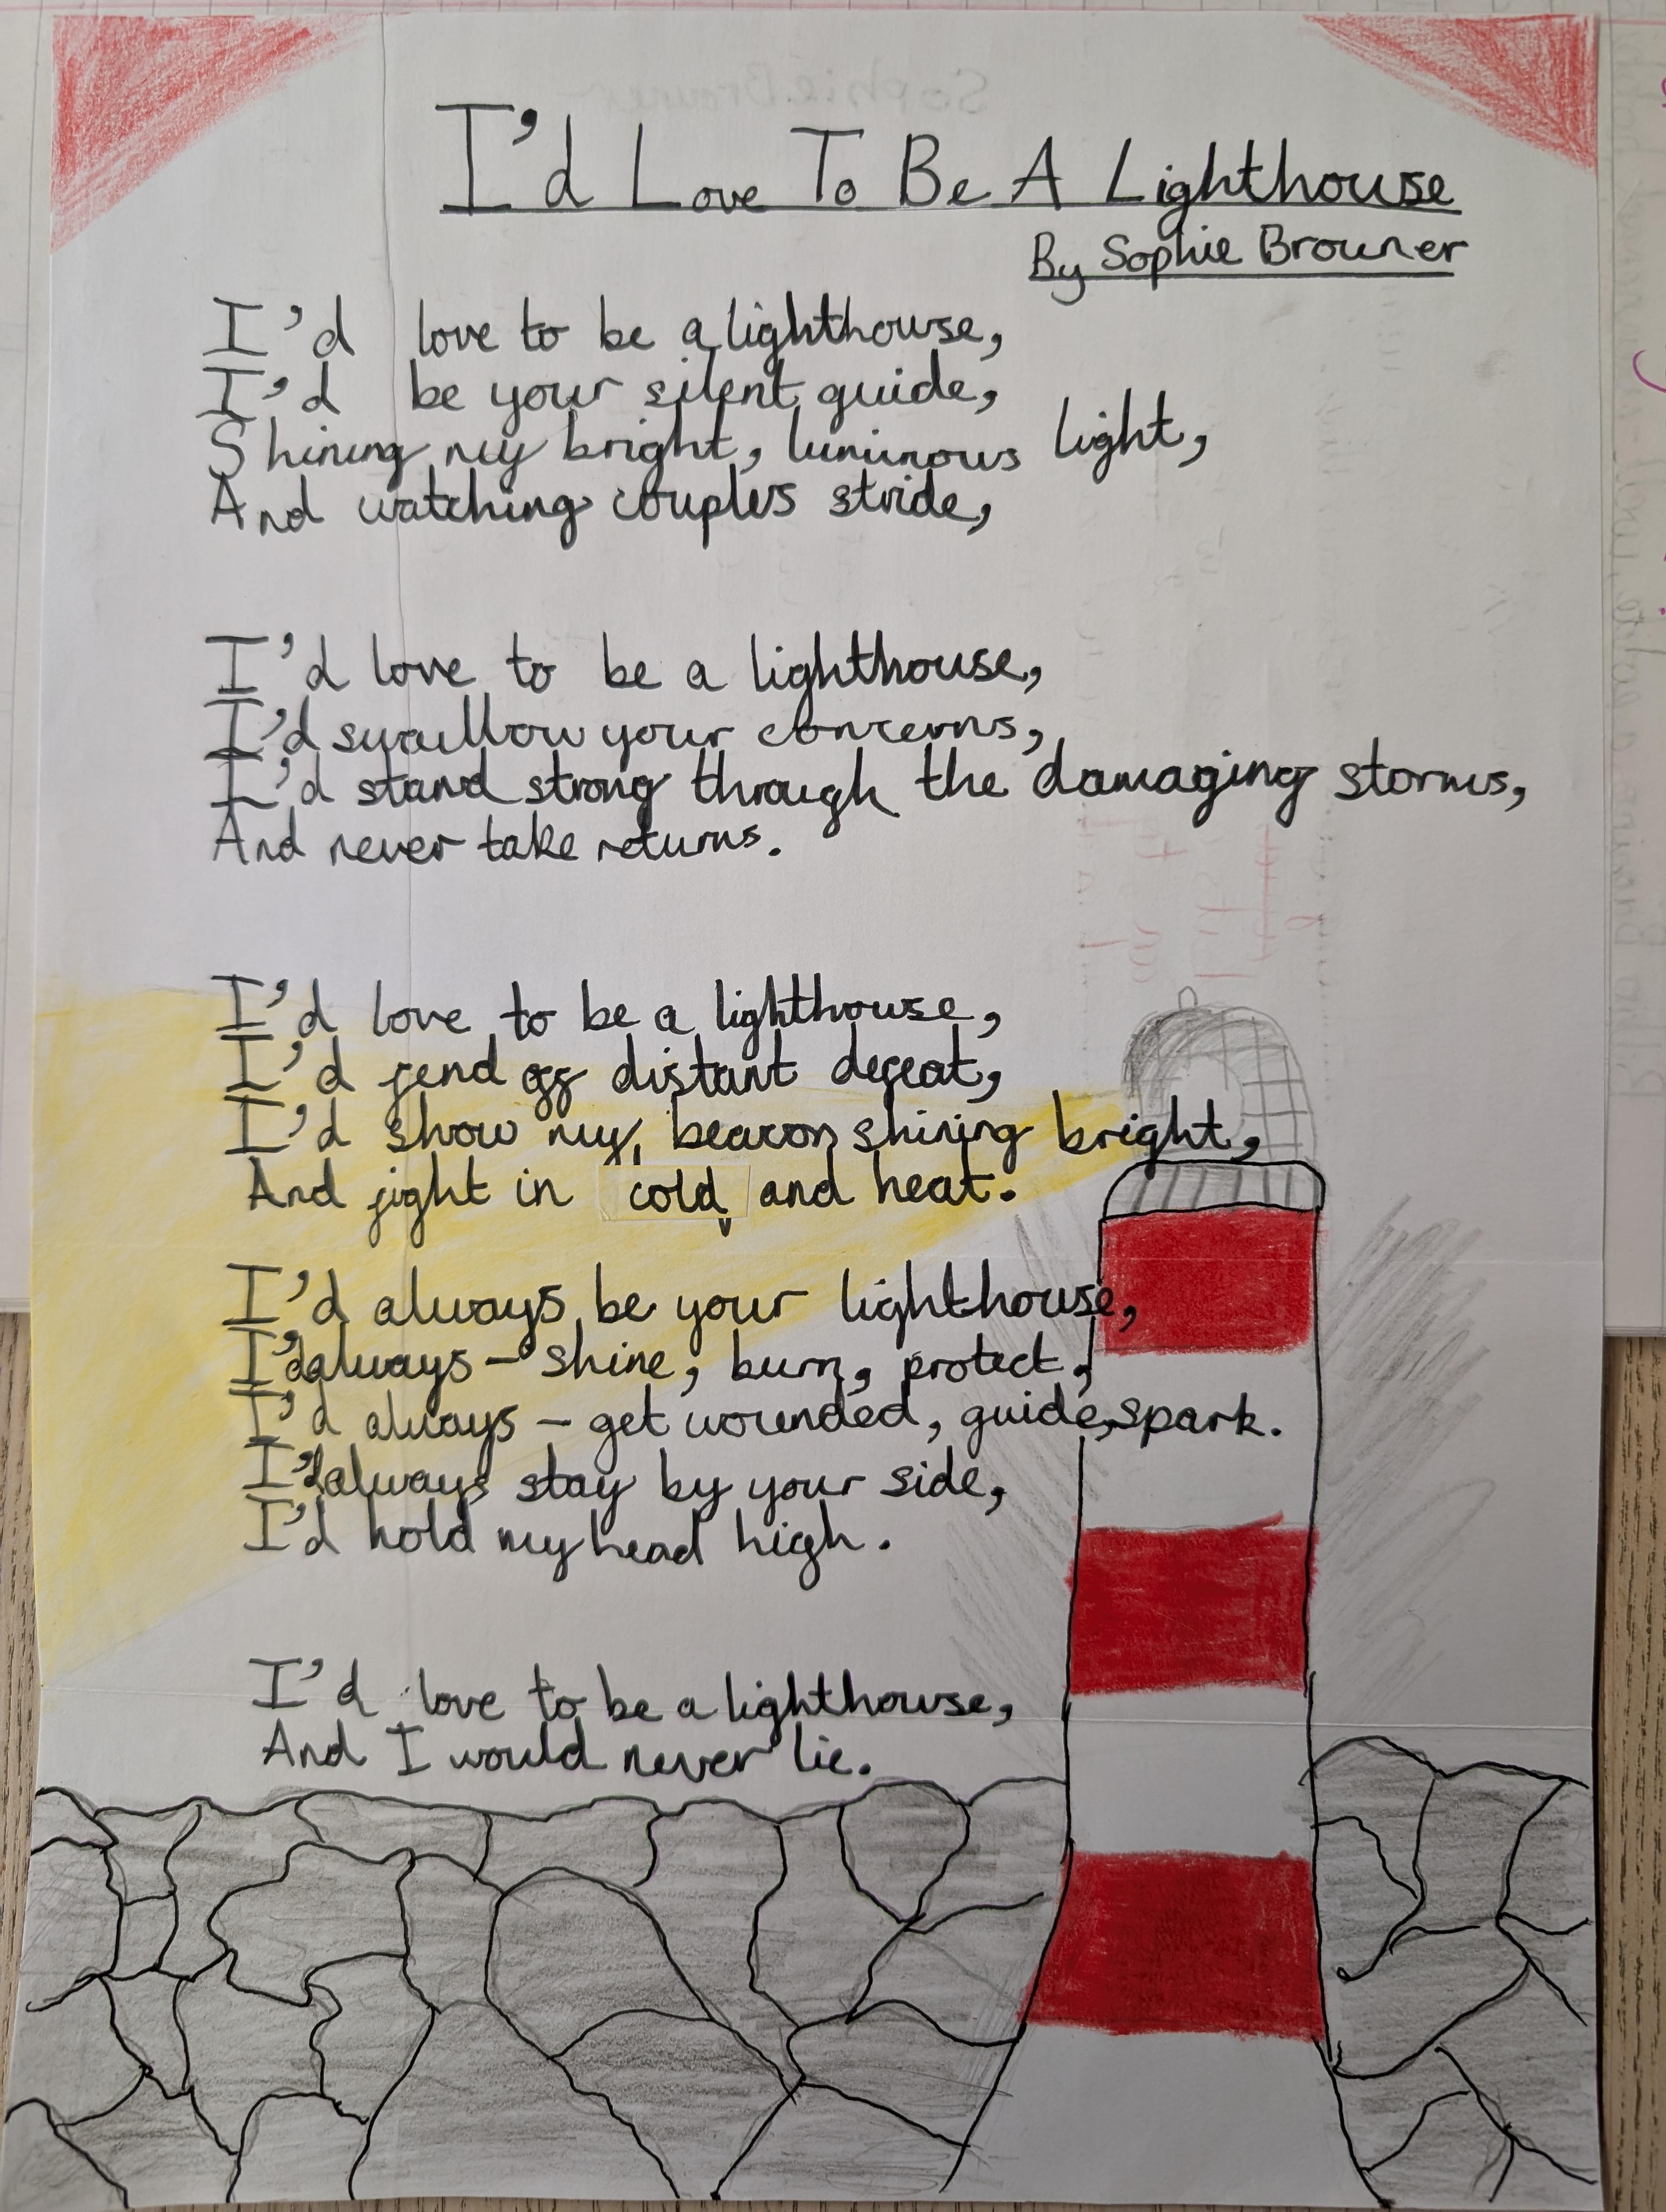 I'd Love To Be A Lighthouse
By Sophie Browner
I'd love to be a lighthouse,
I'd be your silent guide,
Shining my bright, luminous light,
And watching couples stride,
I'd love to be a lighthouse,
I'd swallow your concerns,
I'd stand strong through the damaging storms,
And never take returns.
I'd love to be a lighthouse,
I'd fend off distant defeat,
I'd show my beacon shining bright,
And fight in cold and heat.
I'd always be your lighthouse,
I'd always - shine, burn, protect,
I'd always - get wounded, guide, spark.
I'd always stay by your side,
I'd hold my head high.
I'd love to be a lighthouse,
And I would never lie.